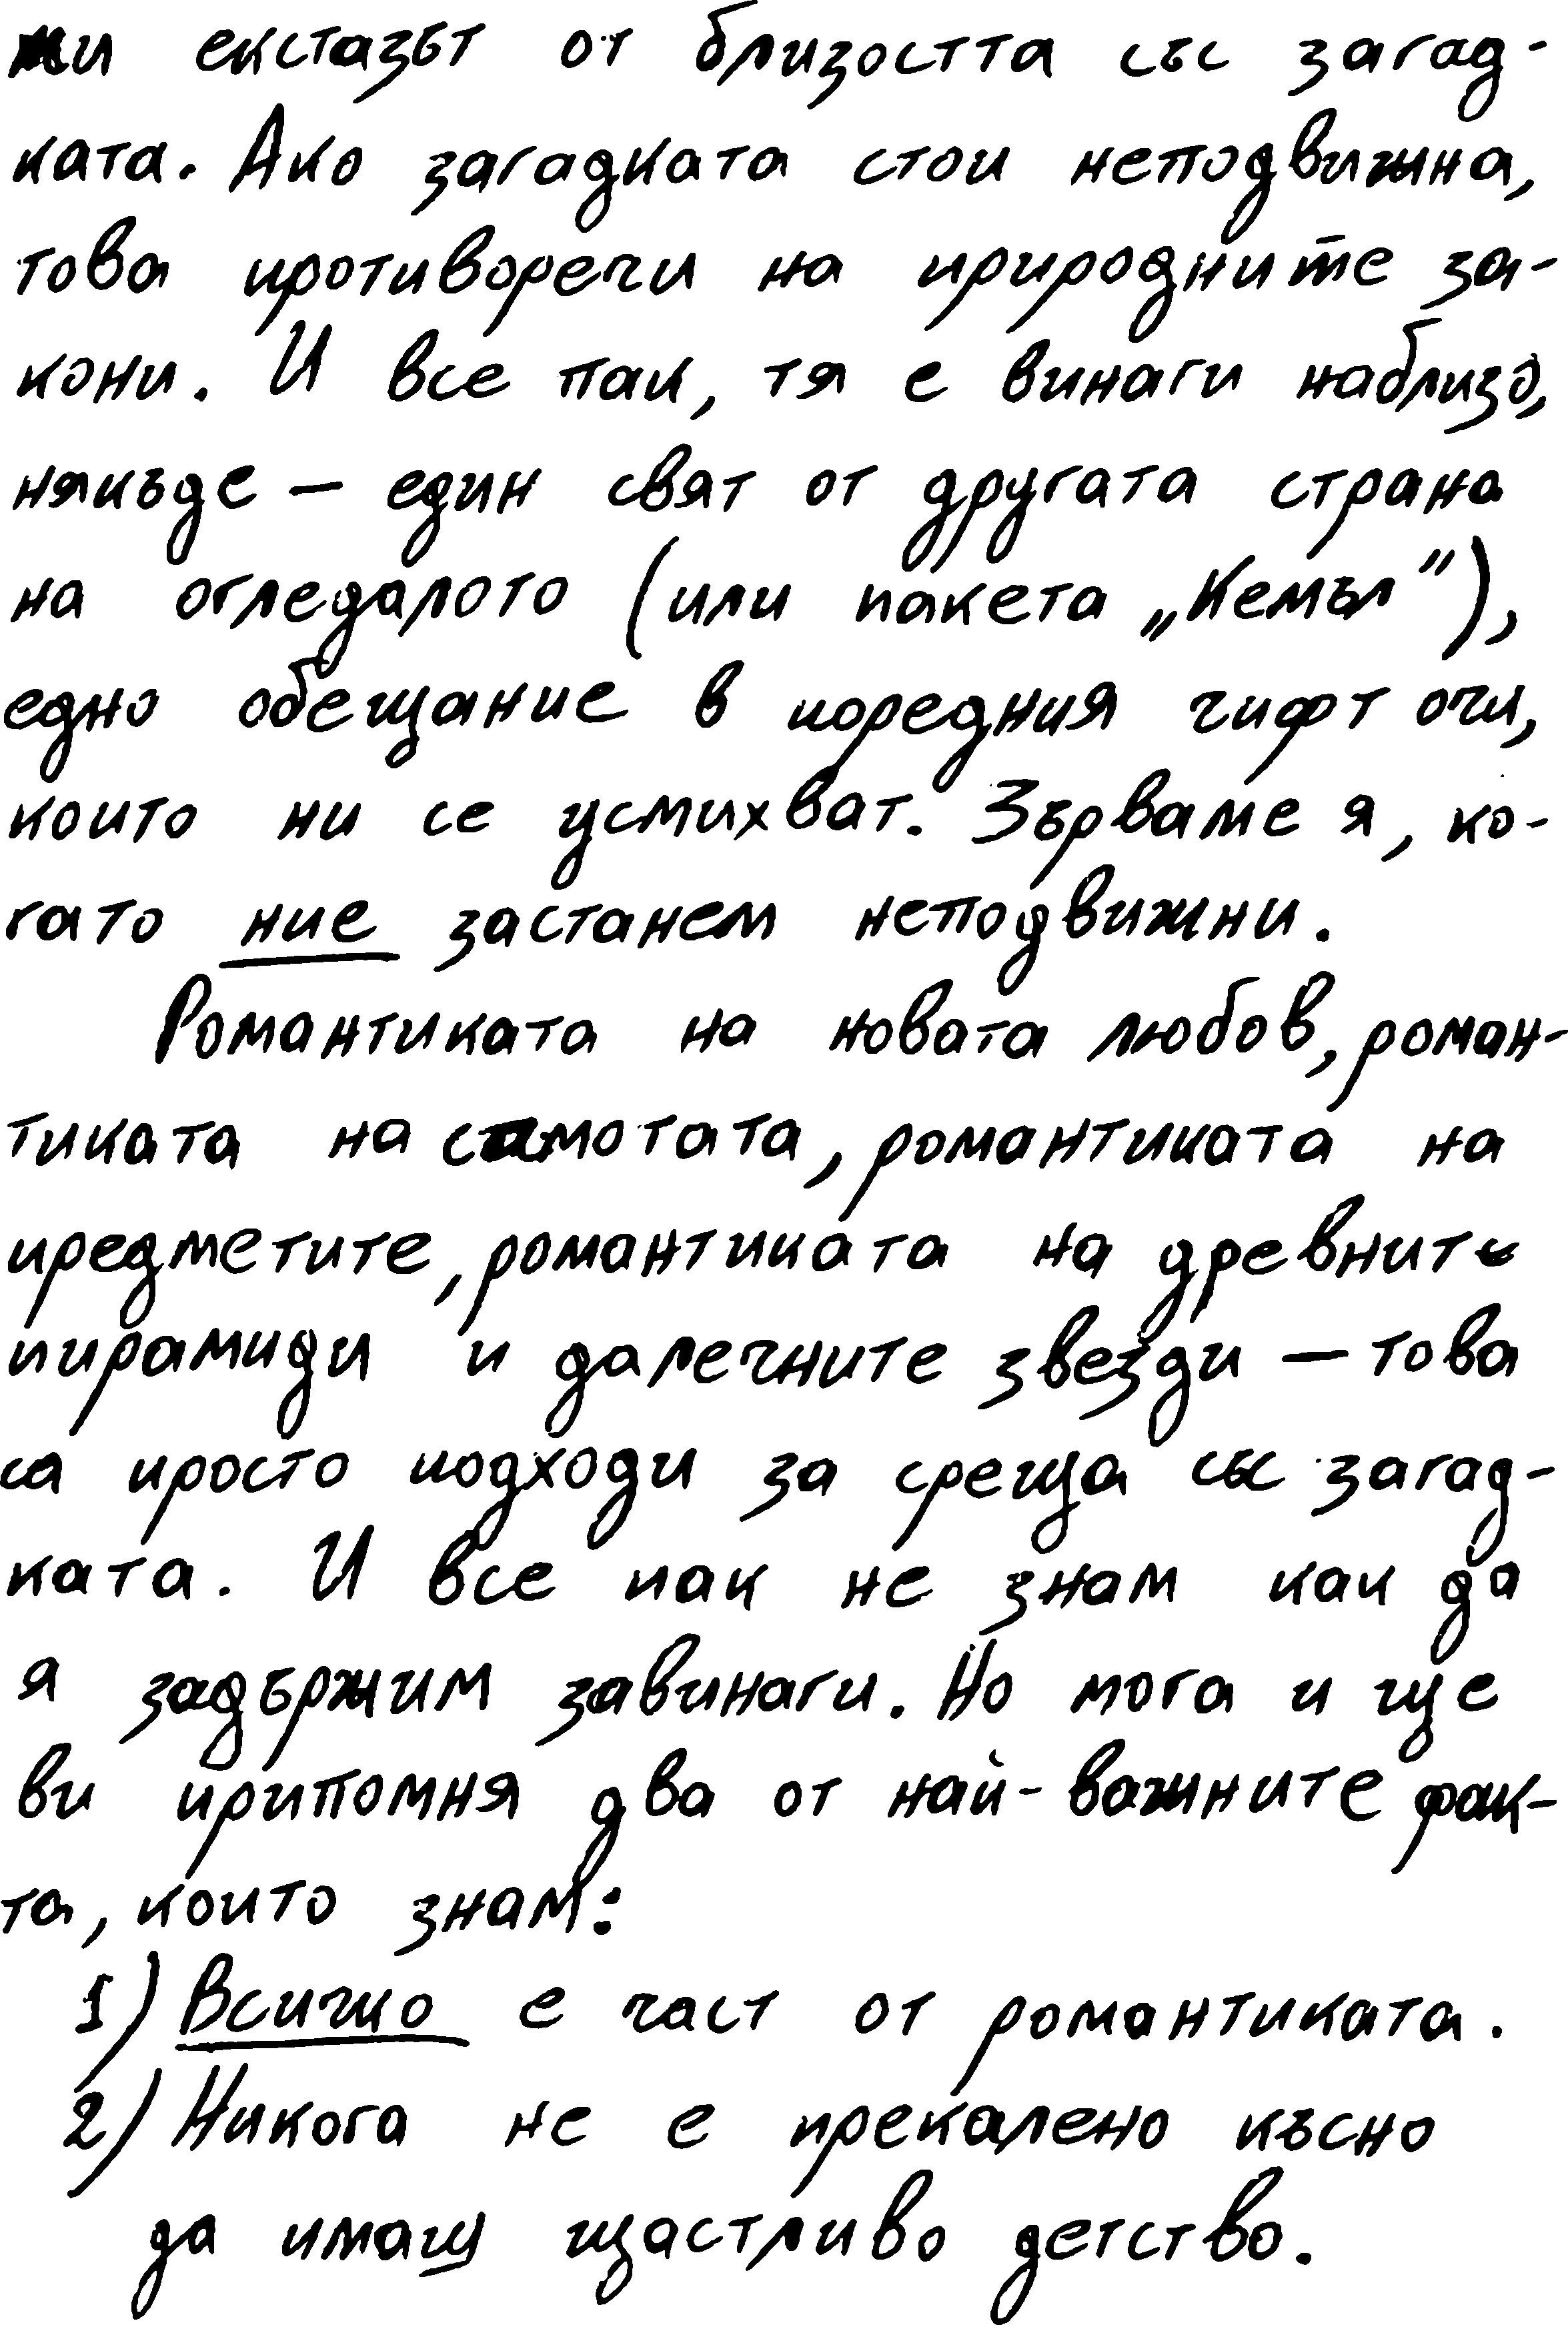 жи екстазът от близостта със загад-
ката. Ако загадката стои неподвижна,
това противоречи на природните за-
кони. И все пак, тя е винаги наблизо,
някъде – един свят от другата страна
на огледалото (или пакета „Кемъл"),
едно обещание в поредния чифт очи,
които ни се усмихват. Зърваме я, ко-
гато ние застанем неподвижни.
Романтиката на новата любов, роман-
тиката на самотата, романтиката на
предметите, романтиката на древните
пирамиди и далечните звезди – това
са просто подходи за среща със загад-
ката. И все пак не знам как да
я задържим завинаги. Но мога и ще
ви припомня два от най-важните фак-
та, които знам:
1) Всичко е част от романтиката.
2) Никога не е прекалено късно
да имаш щастливо детство.